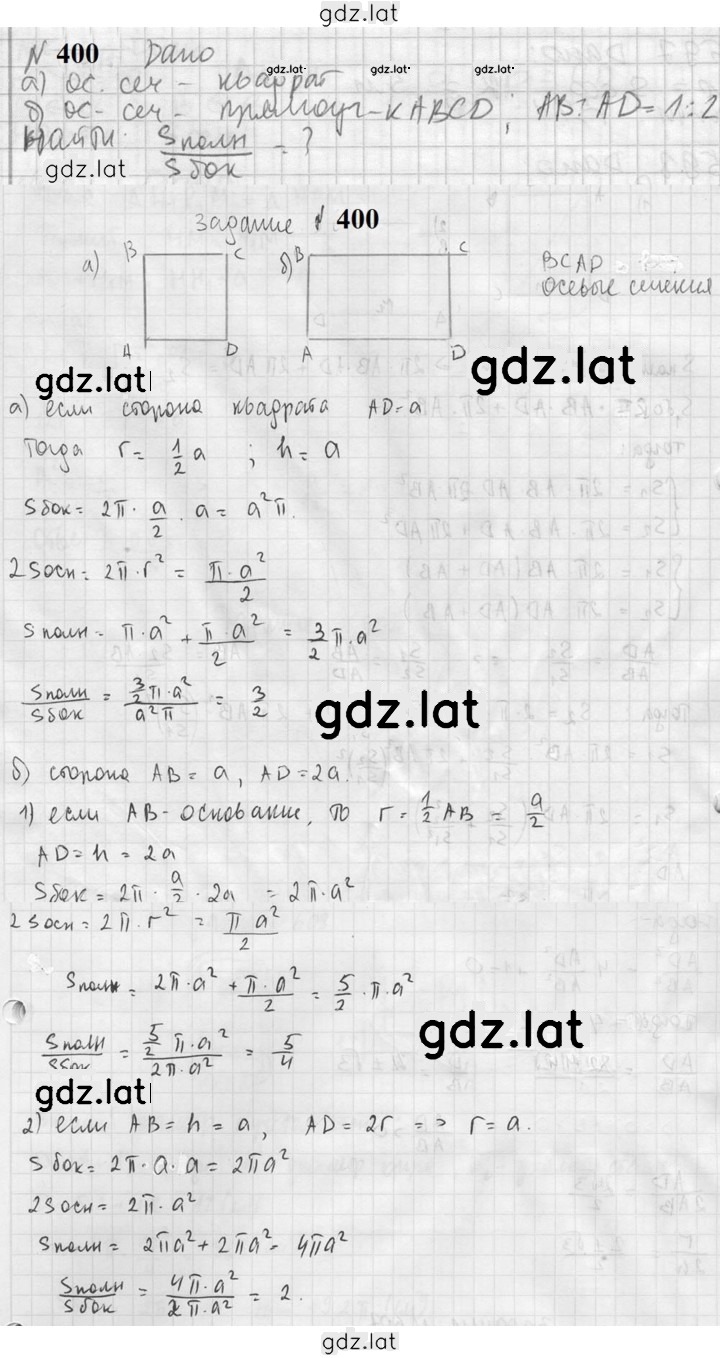 gdz.lat
N 400 Дано
а) ос. сеч - квадрат
б) ос- сеч - прямоуг-к ABCD; AB:AD=1:2
Найти: Sполн/Sбок = ?
gdz.lat gdz.lat gdz.lat
gdz.lat
Задание № 400
а) B C б) B C
BCAD
осевые сечения
A D A D
gdz.lat gdz.lat
а) если сторона квадрата AD=a
Тогда r= 1/2 a ; h= a
Sбок= 2π· a/2 · a= a²π.
2Sосн= 2π·r² = π·a²/2
Sполн= π·a² + π·a²/2 = 3/2 π·a²
Sполн/Sбок = (3/2 π·a²)/(a²π) = 3/2
gdz.lat
б) сторона AB= a, AD=2a.
1) если AB-основание, то r= 1/2 AB = a/2
AD=h=2a
Sбок= 2π· a/2 · 2a = 2π·a²
2Sосн= 2π·r² = π a²/2
Sполн= 2π·a² + π·a²/2 = 5/2 · π·a²
Sполн/Sбок = (5/2 π·a²)/(2π·a²) = 5/4
gdz.lat
gdz.lat
2) если AB= h = a, AD=2r => r=a.
Sбок= 2π·a·a= 2πa²
2Sосн= 2π·a²
Sполн= 2πa²+2πa²= 4πa²
Sполн/Sбок = 4π·a²/2π·a² = 2.
gdz.lat